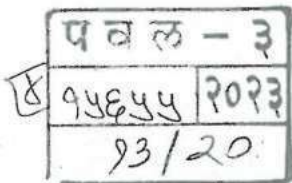 पवल - ३
४ १५६५५ २०२३
१३/२०